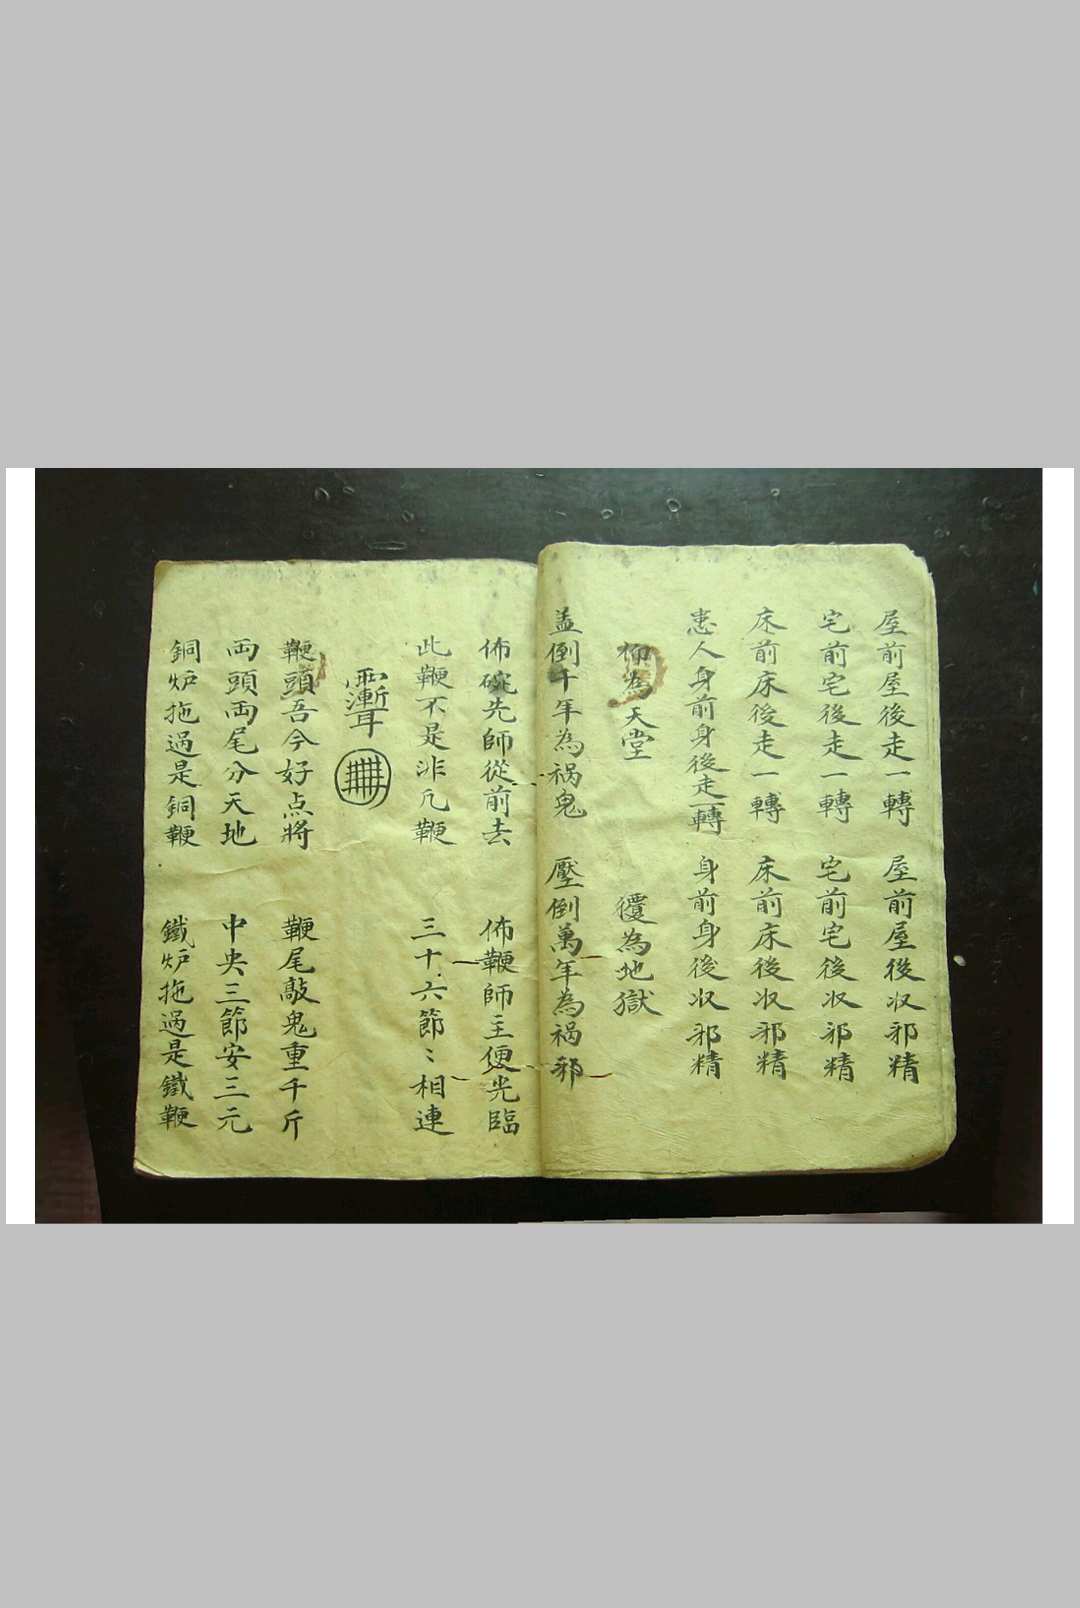 屋前屋後走一轉　屋前屋後収邪精
宅前宅後走一轉　宅前宅後収邪精
床前床後走一轉　床前床後収邪精
患人身前身後走一轉　身前身後収邪精
仰為天堂　覆為地獄
盖倒千年為祸鬼　壓倒萬年為祸邪
佈碗先師從前去　佈鞭師主便光臨
此鞭不是非凡鞭　三十六節〻相連
鞭頭吾今好点將　鞭尾敲鬼重千斤
両頭両尾分天地　中央三節安三元
銅炉拖過是銅鞭　鐵炉拖過是鐵鞭